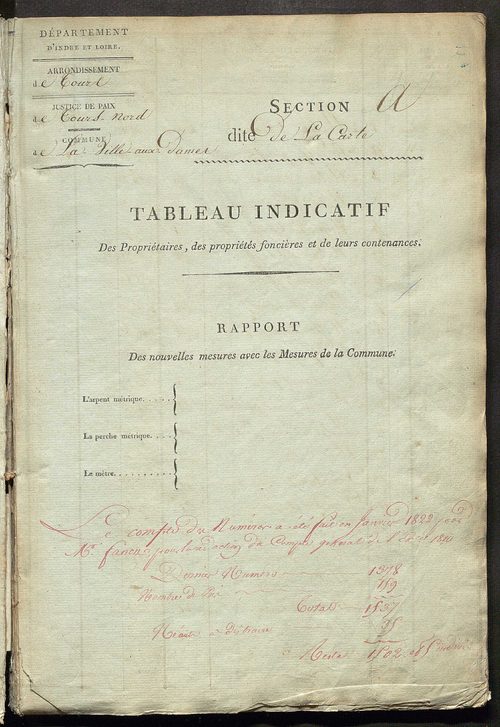 DÉPARTEMENT
D'INDRE ET LOIRE.
ARRONDISSEMENT
de Tours
JUSTICE DE PAIX
de Tours Nord
COMMUNE
de La Ville aux Dames
SECTION A
dite De La Carte
TABLEAU INDICATIF
Des Propriétaires, des propriétés foncières et de leurs contenances.
RAPPORT
Des nouvelles mesures avec les Mesures de la Commune.
L'arpent métrique.....
La perche métrique....
Le mètre..........
Le compte du Numéros a été fait en Janvier 1822 pour
Mr. pour la rédaction du Compte général de
Dernier Numéro 1378
Nombre de Bis 159
Total 1537
Néant à distraire 35
Reste 1502